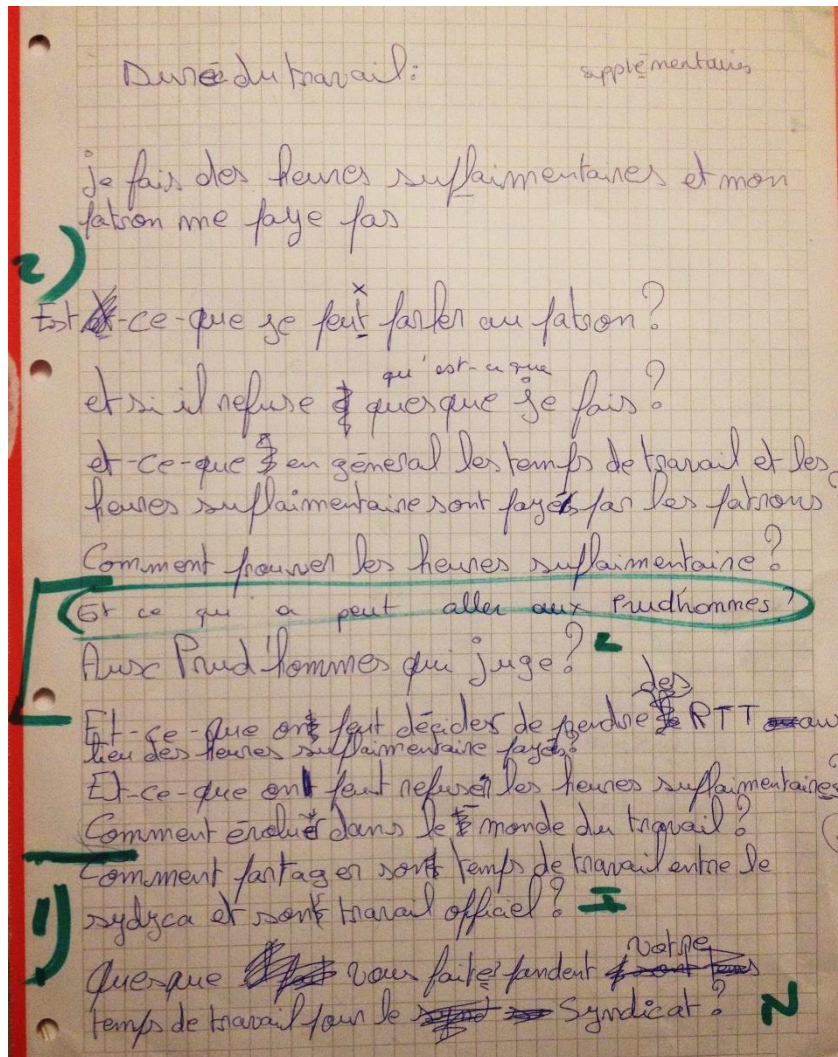 Durée du travail:
supplémentaires
je fais des heures suplaimentaires et mon
patron me paye pas
2)
Est-ce-que je peut parler au patron?
qu'est-ce que
et si il refuse quesque je fais?
et-ce-que en géneral les temps de travail et les
heures suplaimentaire sont payés par les patrons?
Comment prouver les heures suplaimentaire?
Et ce qu'a peut aller aux Prud'hommes?
Aux Prud'hommes qui juge? 2
des
Et-ce-que on peut décider de perdre RTT au
lieu des heures suplaimentaire payés?
Et-ce-que on peut refuser les heures suplaimentaires?
Comment évoluer dans le monde du travail?
Comment partager sont temps de travail entre le
1)
sydyca et sont travail officel? I
votre
quesque vous faite pendent
temps de travail pour le Syndicat? N